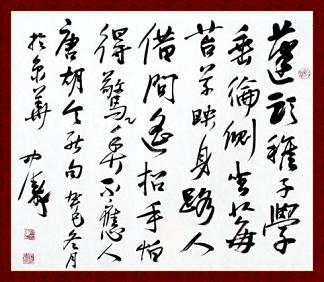 蓬头稚子學
垂綸側坐莓
苔草映身路人
借問遥招手怕
得驚魚不應人
唐胡令能句癸巳冬月
於京華